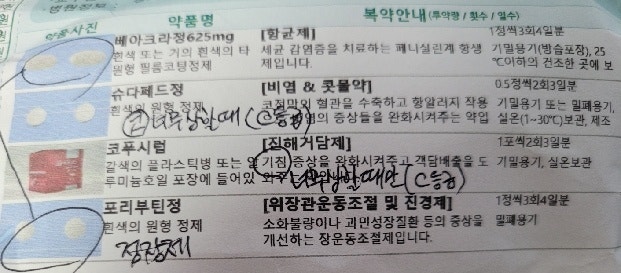 약품사진 약품명 복약안내(투약량 / 횟수 / 일수)
베아크라정625mg [항균제] 1정씩3회4일분
흰색 또는 거의 흰색의 타원형 필름코팅정제 세균 감염증을 치료하는 페니실린계 항생제입니다. 기밀용기(방습포장), 25℃이하의 건조한 곳에 보
슈다페드정 [비염 & 콧물약] 0.5정씩2회3일분
흰색의 원형 정제 코점막의 혈관을 수축하고 항알러지 작용 증상들을 완화시켜주는 약입 기밀용기 또는 밀폐용기, 실온(1~30℃)보관, 제조
너무 심할 때 (C등급)
코푸시럽 [진해거담제] 1포씩2회3일분
갈색의 플라스틱병 또는 알루미늄호일 포장에 들어있 기침 증상을 완화시켜주고 객담배출을 도 기밀용기, 실온보관
너무 심할 때만 (C등급)
포리부틴정 [위장관운동조절 및 진경제] 1정씩3회4일분
흰색의 원형 정제 소화불량이나 과민성장질환 등의 증상을 개선하는 장운동조절제입니다. 밀폐용기
정장제